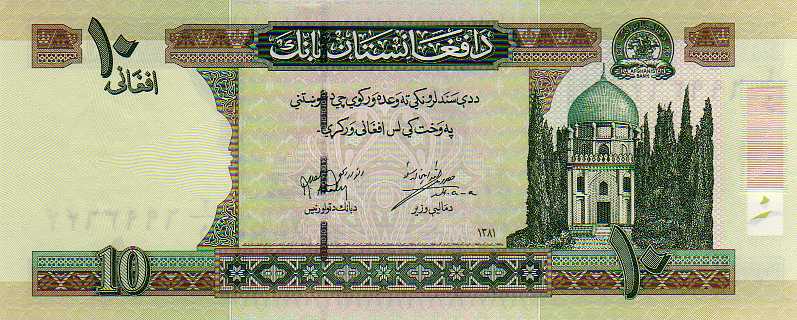 ۱۰
افغانۍ
د افغانستان بانک
DA AFGHANISTAN
BANK
ددې سند لرونکي ته وعده ورکوي چې د غوښتنې
په وخت کې لس افغانۍ ورکړي.
د مالیې وزیر
د بانک د ټولو رئیس
۱۳۸۱
10
۱۰